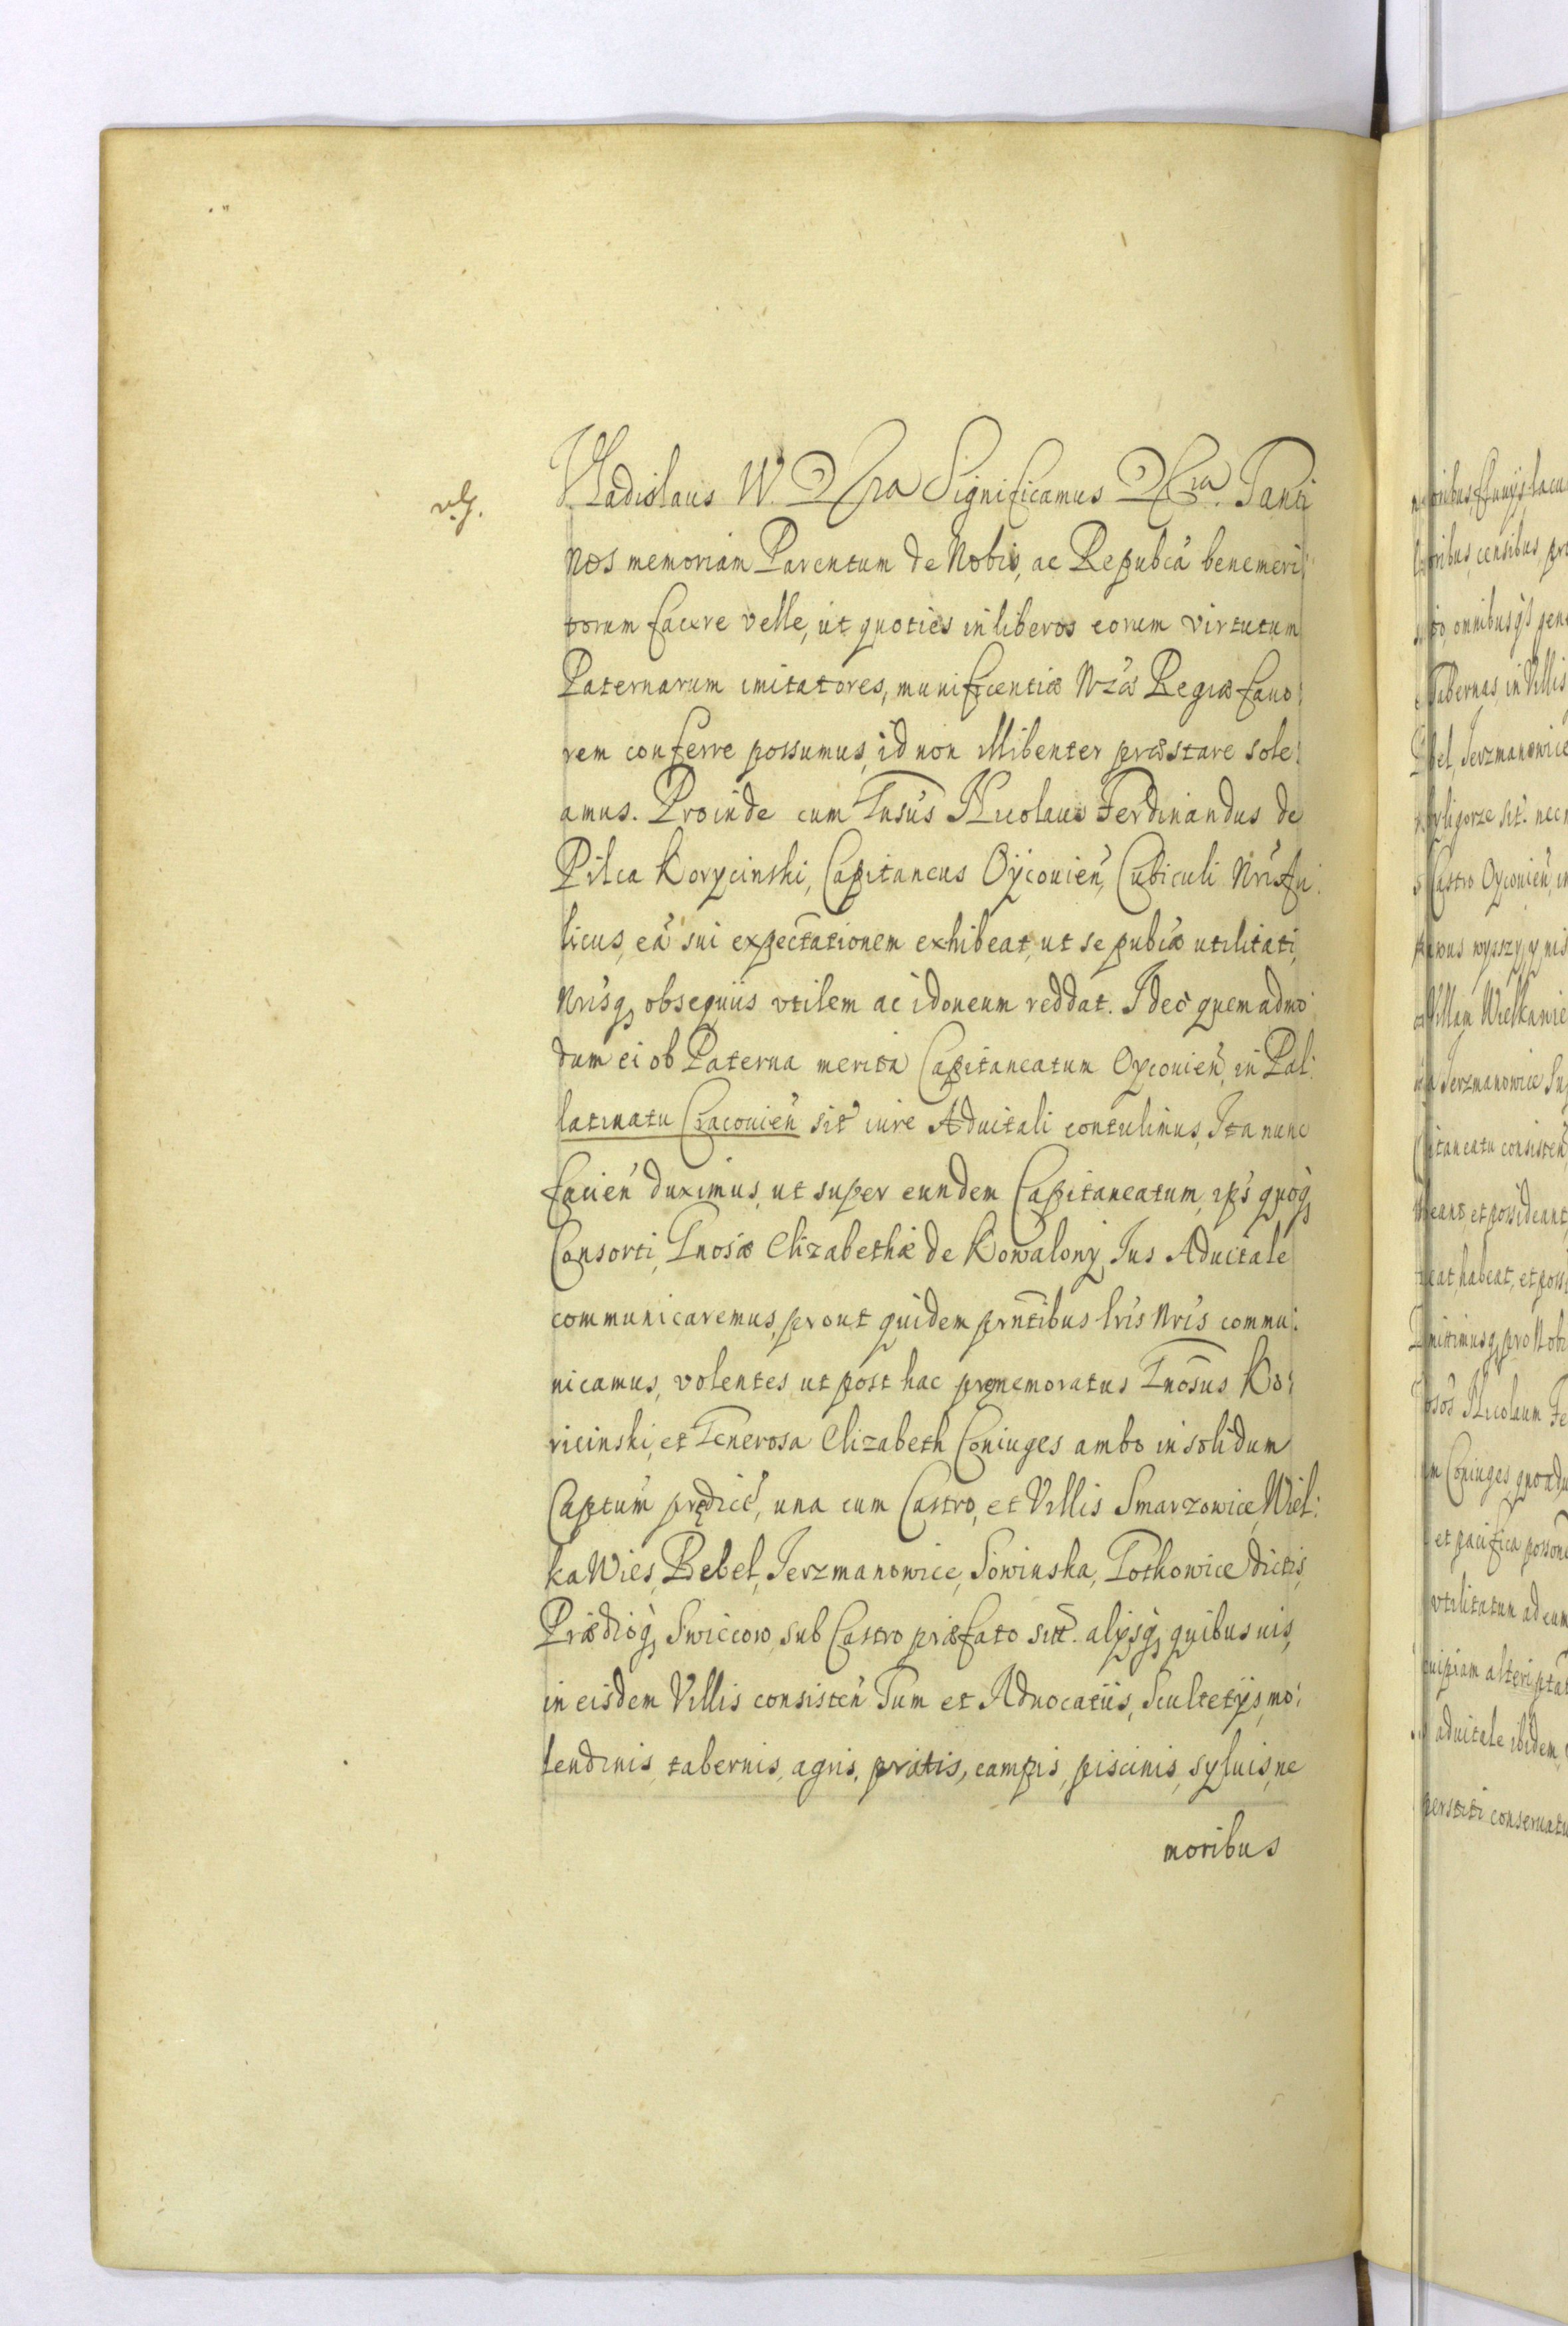 Vladislaus IV. D Gra Significamus D Cra. Tanti
Nos memoriam Parentum de Nobis, ac Republica benemeri:
torum facere velle, ut quoties in liberos eorum virtutum
Paternarum imitatores, munificentiæ Nræ Regiæ fauo:
rem conferre possumus, id non illibenter præstare sole:
amus. Proinde cum Gnsus Nicolaus Ferdinandus de
Pilca Korycinski, Capitaneus Oÿcouien, Cubiculi Nri Au:
licus, eā sui expectationem exhibeat, ut se pubcæ utilitati,
Nrisq obsequiis vtilem ac idoneum reddat. Ideo quemadmo:
dum ei ob Paterna merita Capitaneatum Oycouien, in Pal:
latinatu Cracouien sit iure Aduitali contulimus, Ita nunc
facien duximus, ut super eundem Capitaneatum, ips quoq
Consorti, Gnosæ Elizabethæ de Kowalony, Ius Aduitale
communicaremus, prout quidem prntibus lris Nris commu:
nicamus, volentes ut post hac pręmemoratus Gnosus Ko:
ricinski, et Generosa Elizabeth Coniuges ambo in solidum
Captum prędict, una cum Castro, et Villis Smarzowice, Wiel:
ka Wies, Bebel, Jerzmanowice, Sowinska, Gotkowice dictis,
Prædioq, Swiccow, sub Castro præfato sitt. alysq, quibusuis,
in eisdem Villis consisten Tum et Aduocatiis, Scultetijs, mo:
lendinis, tabernis, agris, pratis, campis, piscinis, syluis, ne
moribus